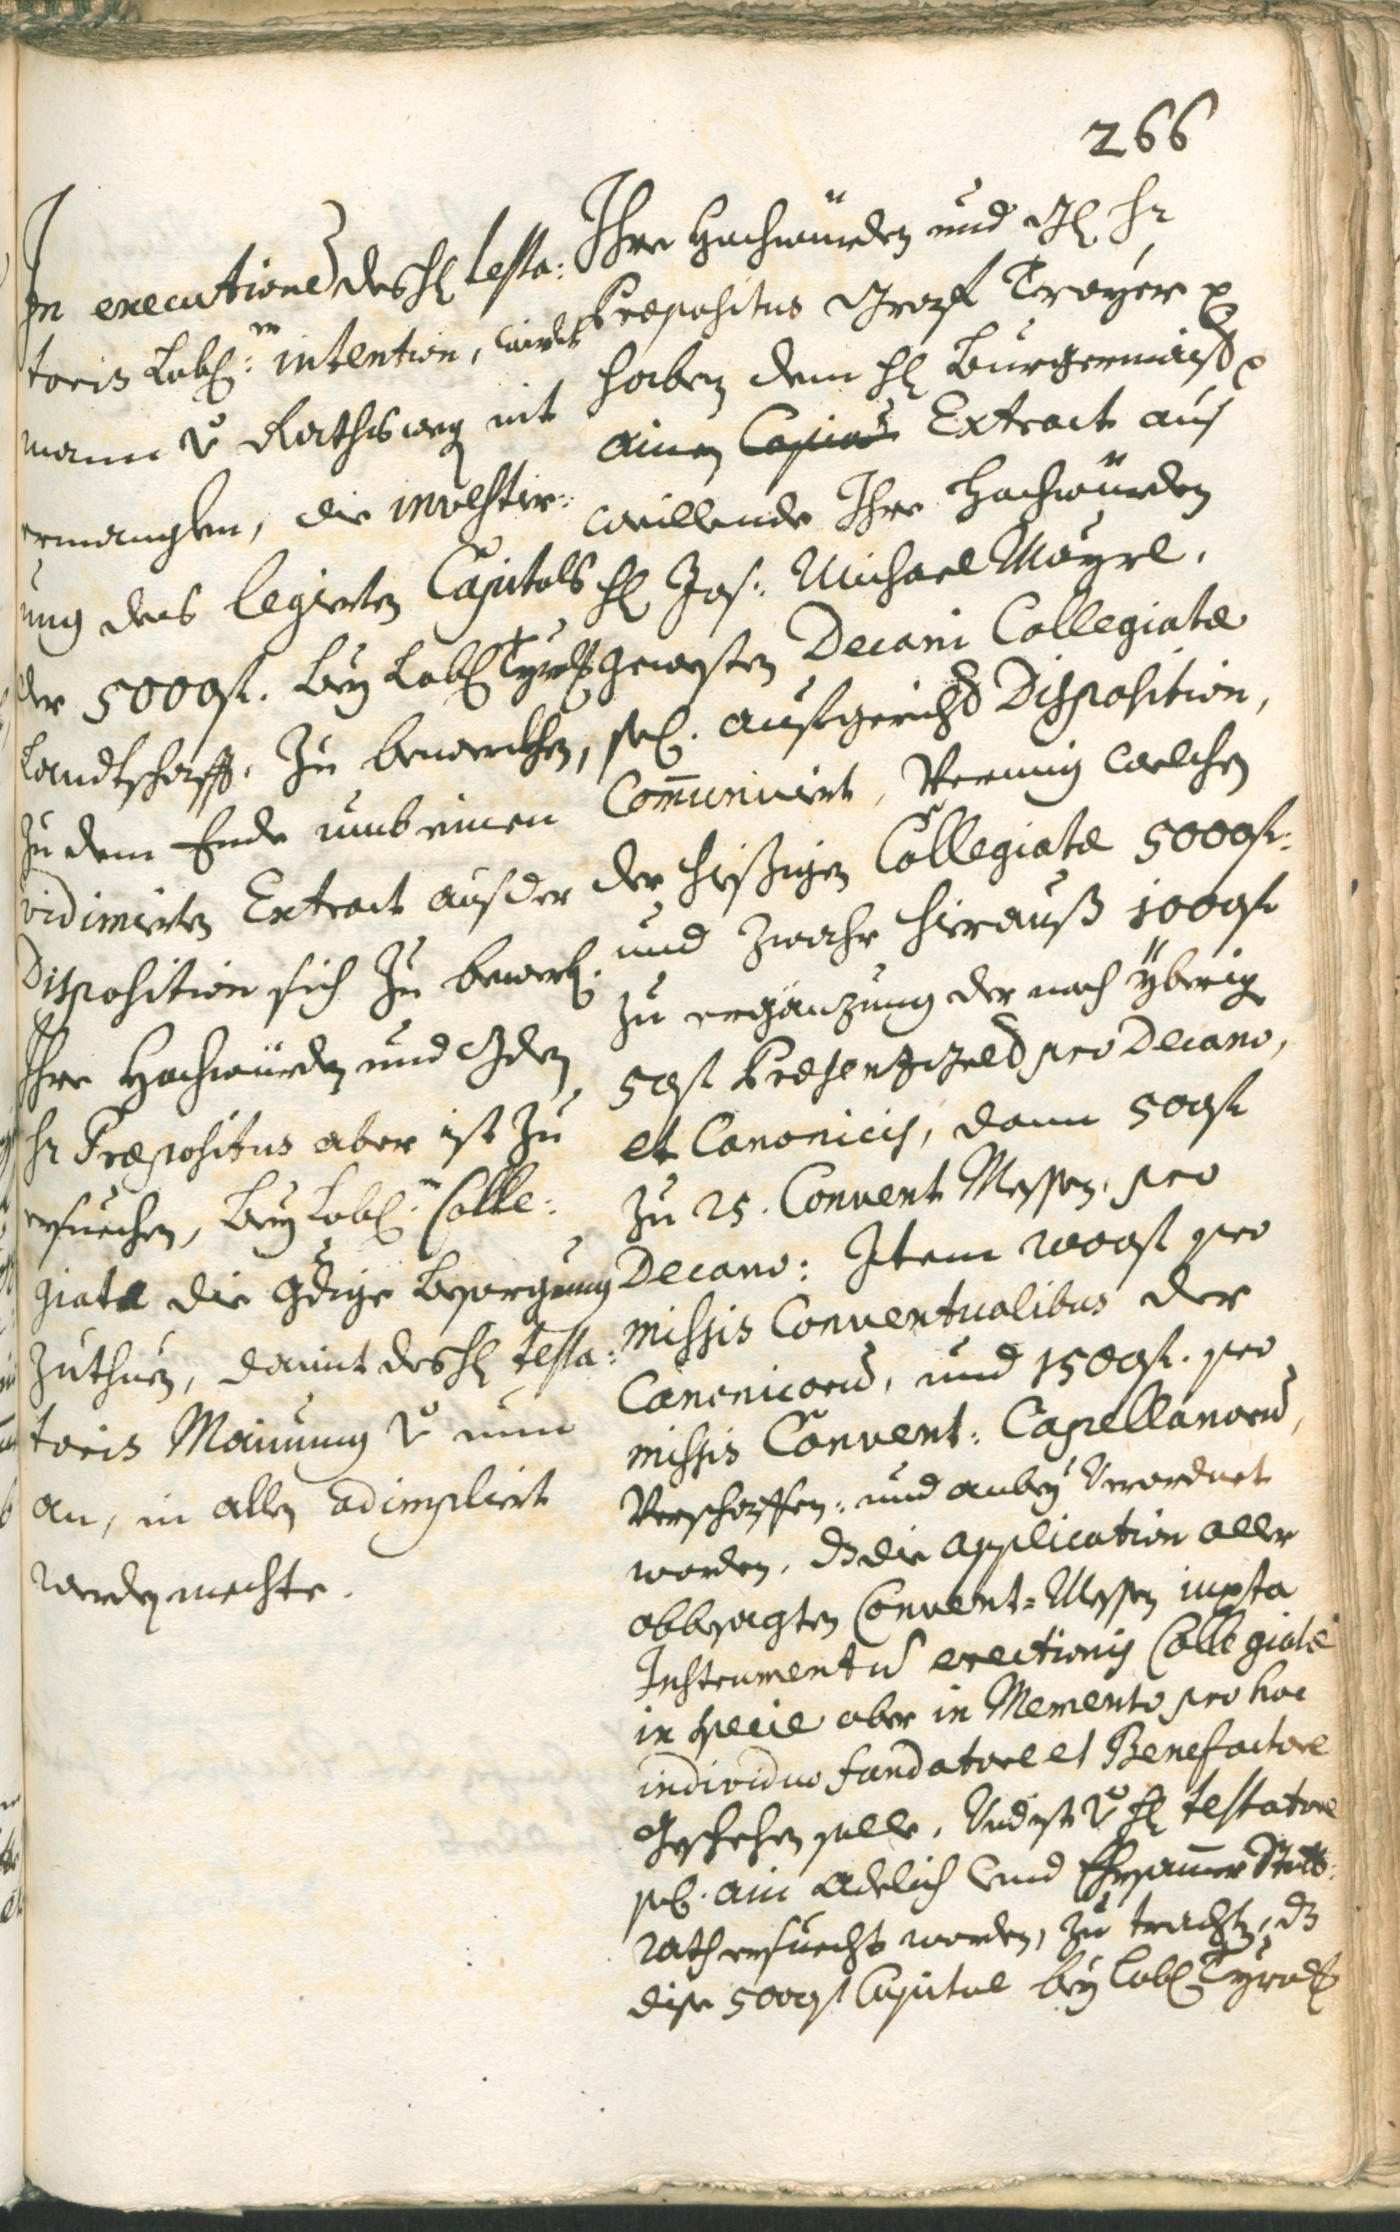 266
In executione des H testa:
toris Lobl:n intention, wirdt
mann v Rathswegen nit
ermanglen, die investir:
ung des legierten Capitals
der 5000 fl. bey Lobl Tyrol
Landtschafft zu bewerckhen,
zu dem Ende umb einen
vidimirten Extract aus der
Disposition sich zu bewerb.
Ihre Hochwürden und Gden
Hr Præpositus aber ist zu
ersuechen, bey Lobl:n Colle:
giata die gdige Besorgung
zuthuen, damit des H testa:
toris Mainung v nun
an, in allen adimpliert
werden mechte.
Ihre Hochwürden und Gl Hr
Præpositus Graff Troyer p
haben dem H Burgermaister p
ainen Copiae Extract aus
weillende Ihre Hochwürden
H Jos: Michael Mayrl,
gewesten Decani Collegiatæ
sel. aufgericht Disposition,
Communicirt, Vermig welchen
der hießigen Collegiatæ 5000 fl:
und zwahr hierauß 1000 fl
zu ergänzung der noch yberig
50 fl Præsenzgeld pro Decano,
et Canonicis, dann 500 fl
zu 25. Convent Messen, pro
Decano: Item 2000 fl pro
missis Conventualibus der
Canonicorum, und 1500 fl. pro
missis Convent: Capellanorum,
Verschaffen, und anbey Verordnet
worden, dz die application aller
obbesagten Convent-Messen iuxta
Instrumentum erectionis Collegiatæ
in specie aber in Memento pro hoc
individuo fundatore et Benefactore
Geschehen solle, Und ist v H testatore
sel. ain Adelich und Ehrsamer Statt:
rath ersuecht worden, zu trachten, dz
dise 5000 fl Capital bey Lobl Tyrol